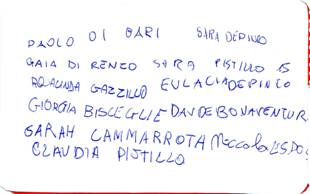 PAOLO DI BARI SARA DEPINTO
GAIA DI RENZO SARA PISTILLO 15
ROSALINDA GAZZILLO EULACIA DEPINTO
GIORGIA BISCEGLIE DAVIDE BONAVENTUR
SARAH CAMMARROTA Niccolo
CLAUDIA PISTILLO